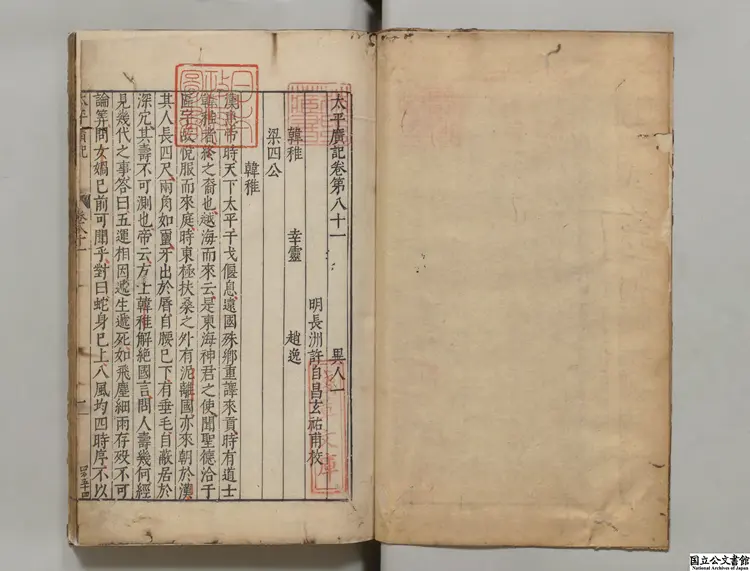 太平廣記卷第八十一　異人一
明長洲許自昌玄祐甫校
韓稚　幸靈　趙逸
梁四公
韓稚
漢惠帝時天下太平干戈偃息遠國殊鄉重譯來貢時有道士
韓稚者終之裔也越海而來云是東海神君之使聞聖德洽于
區宇故悅服而來庭時東極扶桑之外有泥離國亦來朝於漢
其人長四尺兩角如蠒牙出於唇自腰已下有垂毛自蔽居於
深穴其壽不可測也帝云方士韓稚解絶國言問人壽幾何經
見幾代之事答曰五運相因遞生遞死如飛塵細雨存歿不可
論筭問女媧已前可聞乎對曰蛇身已上八風均四時序不以
太平廣記
卷八十一
一
国立公文書館
National Archives of Japan